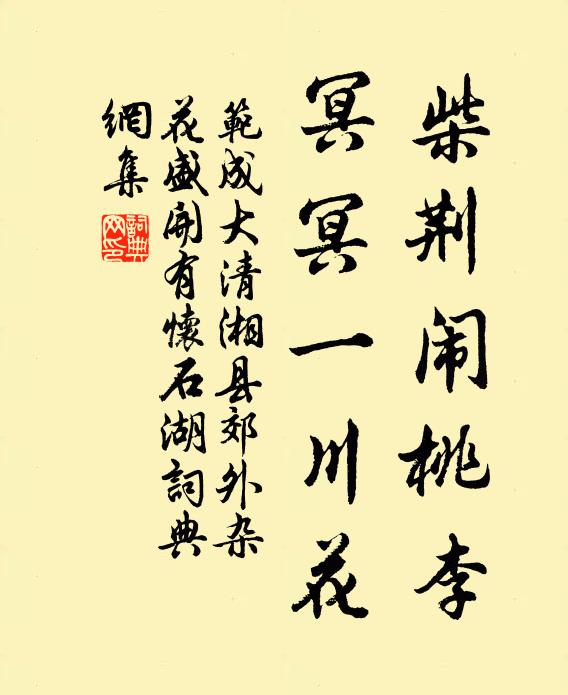 柴荆闹桃李
冥冥一川花
範成大清湘县郊外杂
花盛開有懷石湖詞典
網集
詞典
网印